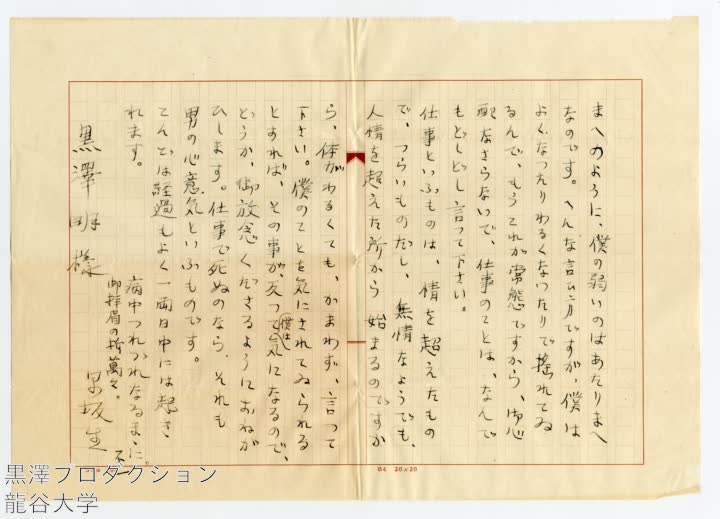 まへのように、僕の弱いのはあたりまへ
なのです。へんな言ひ方ですが、僕は
よくなつたりわるくなつたりで揺れてゐ
るんで、もうこれが常態ですから、御心
配なさらないで、仕事のことは、なんで
もどしどし言つて下さい。
仕事といふものは、情を超えたもの
で、つらいものだし、無情なようでも、
人情を超えた所から始まるのですか
ら、体がわるくても、かまわず、言つて
下さい。僕のことを気にされてゐられる
とあれば、その事が、反つて僕は気になるので、
どうか、御放念くださるようにおねが
ひします。仕事で死ぬのなら、それも
男の心意気といふものです。
こんどは経過もよく一両日中には起き
れます。
病中つれづれなるまゝに。
御拝眉の折萬々。
不一
早坂生
黒澤明様
B4 20×20
黒澤プロダクション
龍谷大学